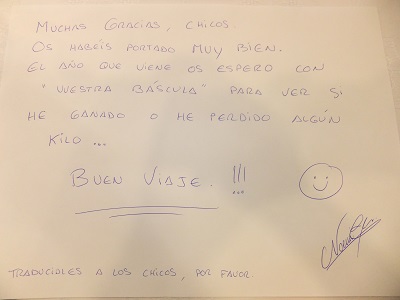 MUCHAS GRACIAS, CHICOS.
OS HABEÍS PORTADO MUY BIEN.
EL AÑO QUE VIENE OS ESPERO CON
"VUESTRA BÁSCULA" PARA VER SI
HE GANADO O HE PERDIDO ALGÚN
KILO...
BUEN VIAJE. !!!
TRADUCIRLES A LOS CHICOS, POR FAVOR.